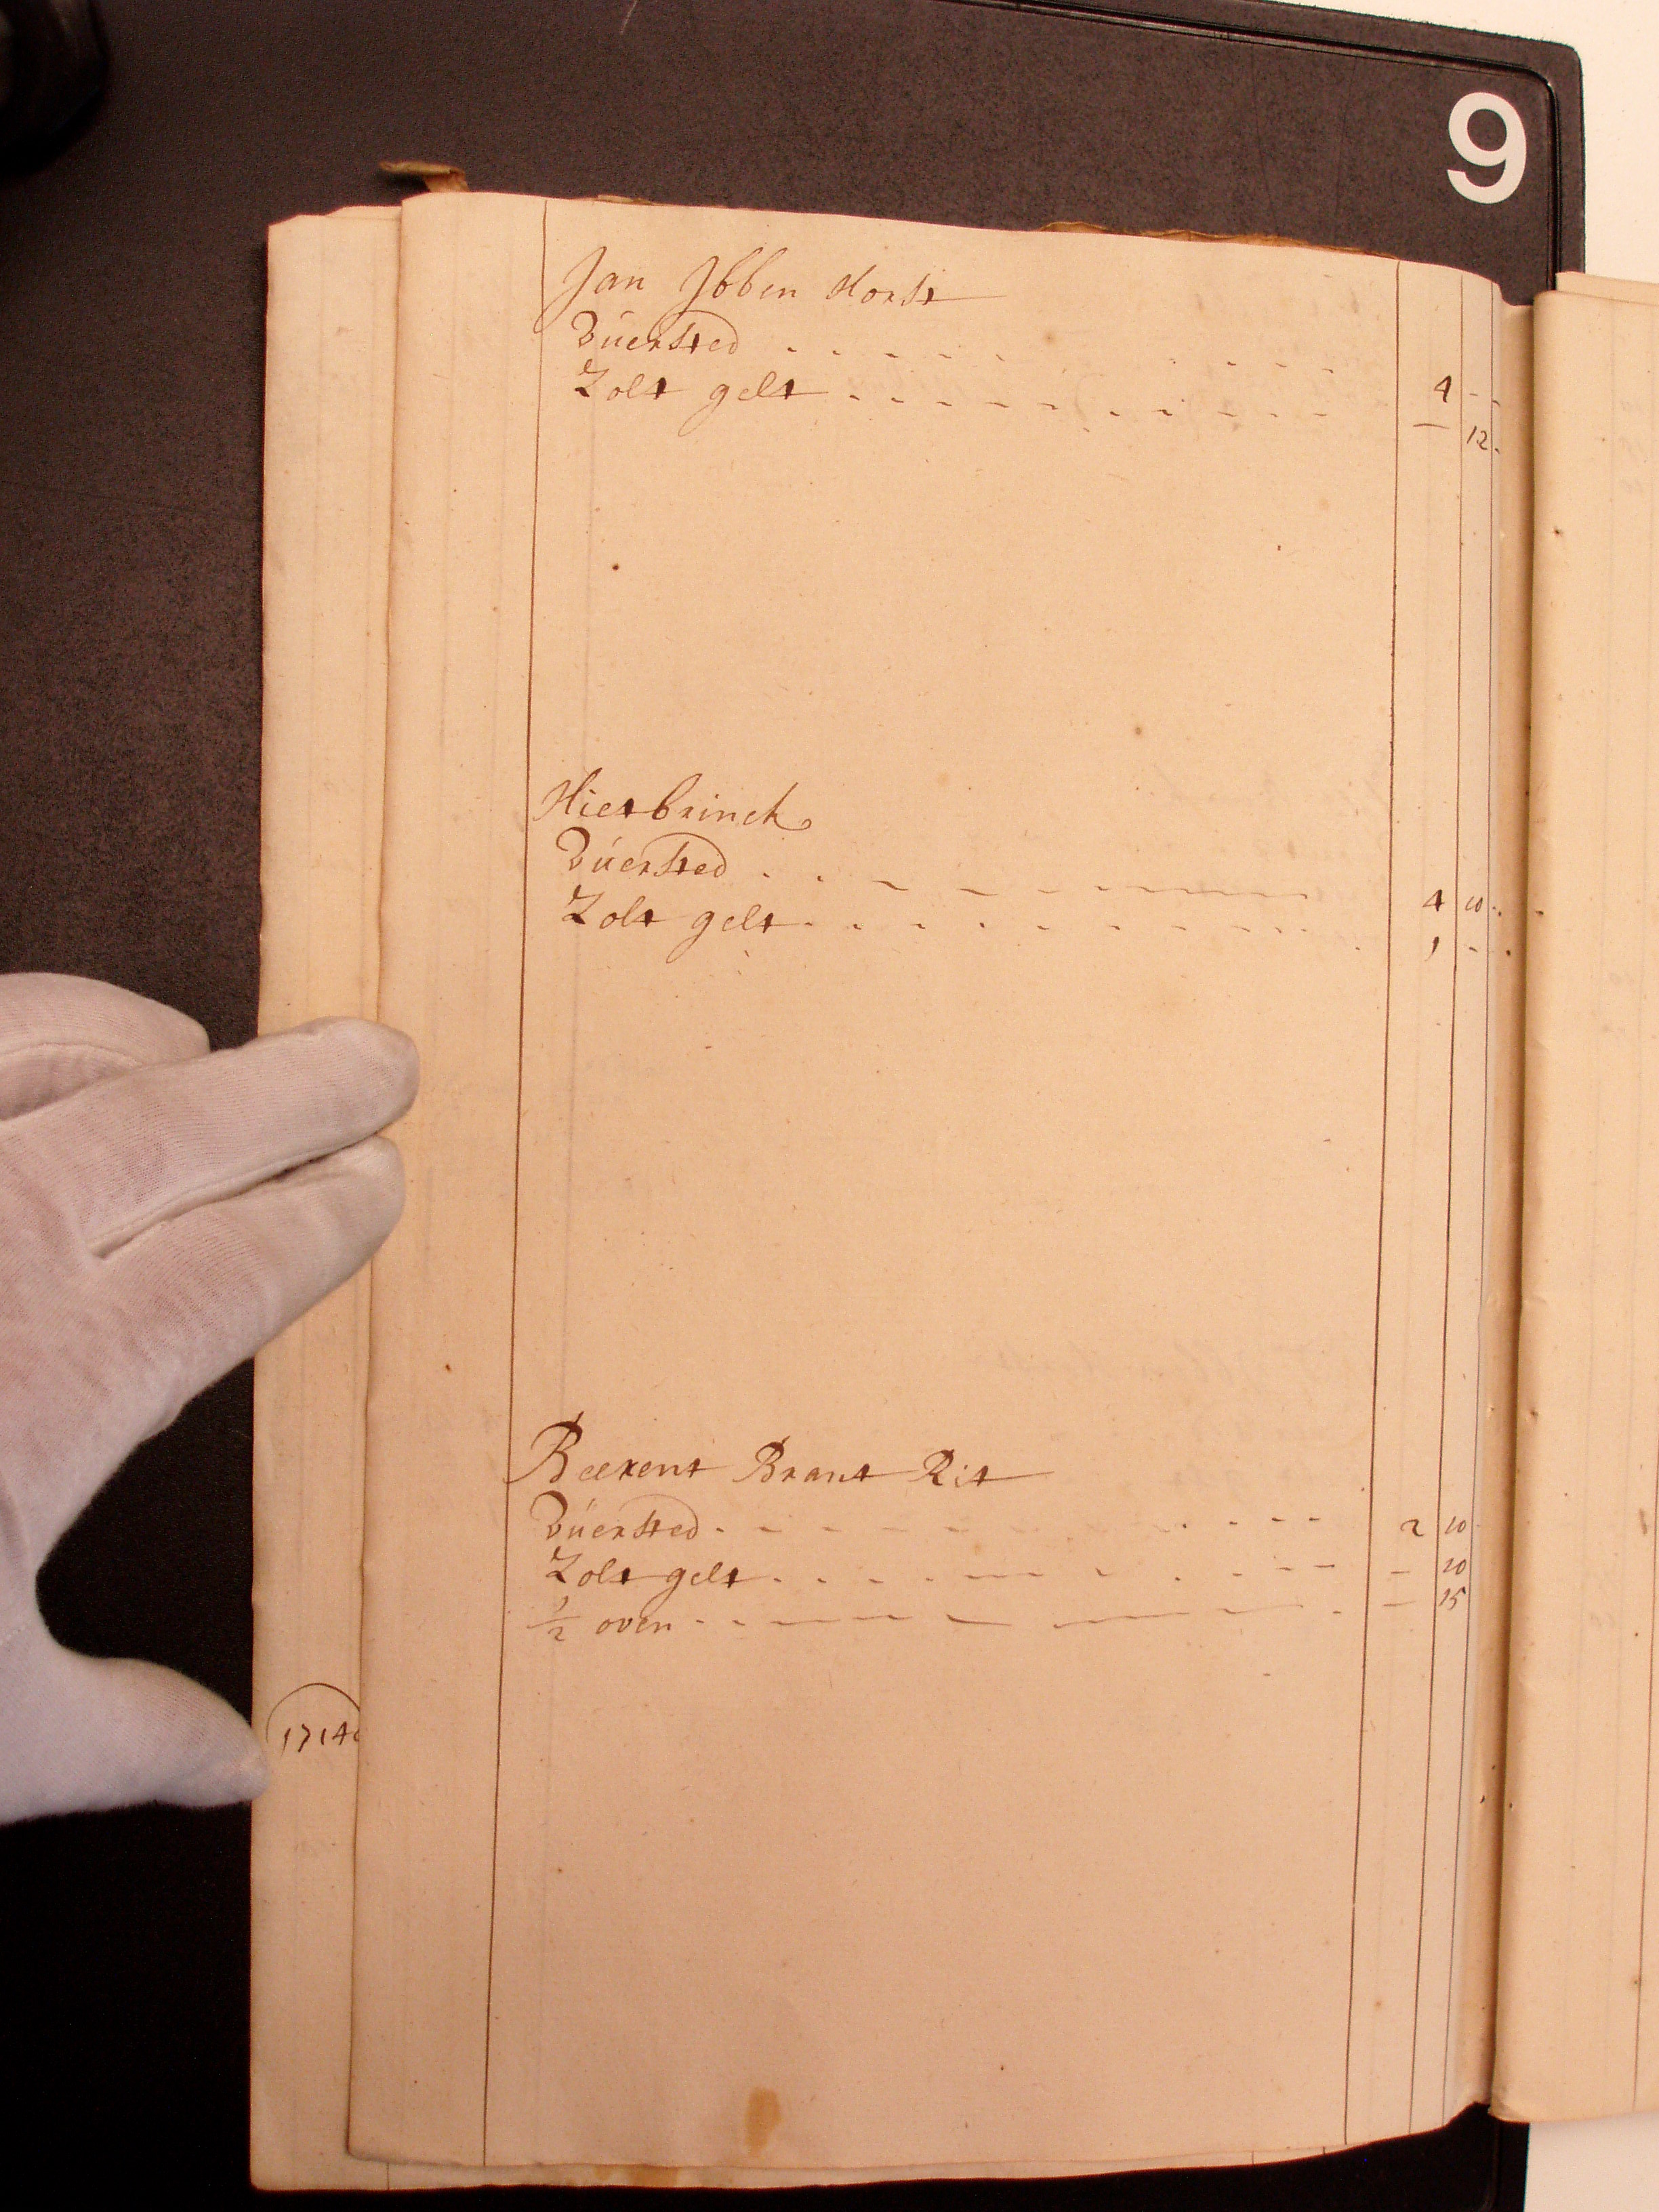 9
Jan Ibben Horst
Vúersted . . . . . . . . . 4 - -
Zolt gelt . . . . . . . . . — 12 -
Hietbrinck
Vúersted . . . . . . . . . 4 10 -
Zolt gelt . . . . . . . . . 1 - -
Beerent Brant Rit
Vúersted . . . . . . . . . 2 10 -
Zolt gelt . . . . . . . . . — 10
1/2 oven . . . . . . . . . — 15
1714